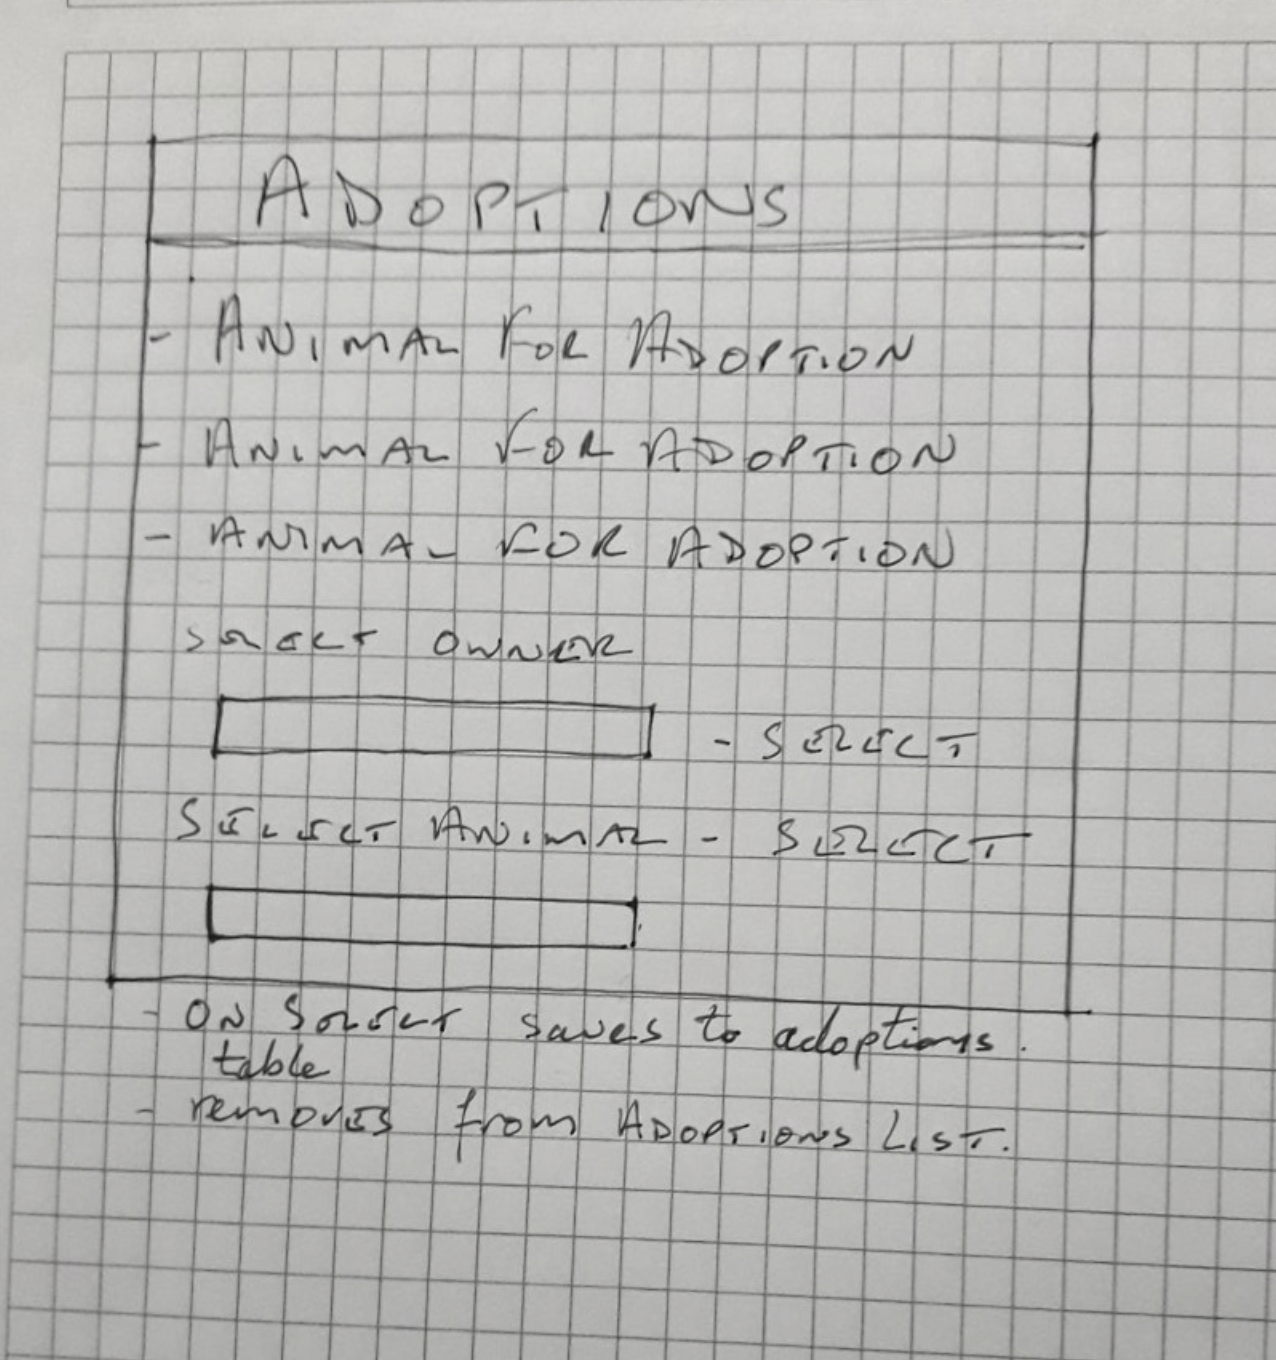 ADOPTIONS
- ANIMAL FOR ADOPTION
- ANIMAL FOR ADOPTION
- ANIMAL FOR ADOPTION
SELECT OWNER
- SELECT
SELECT ANIMAL - SELECT
- ON SELECT saves to adoptions.
table
- removes from ADOPTIONS LIST.